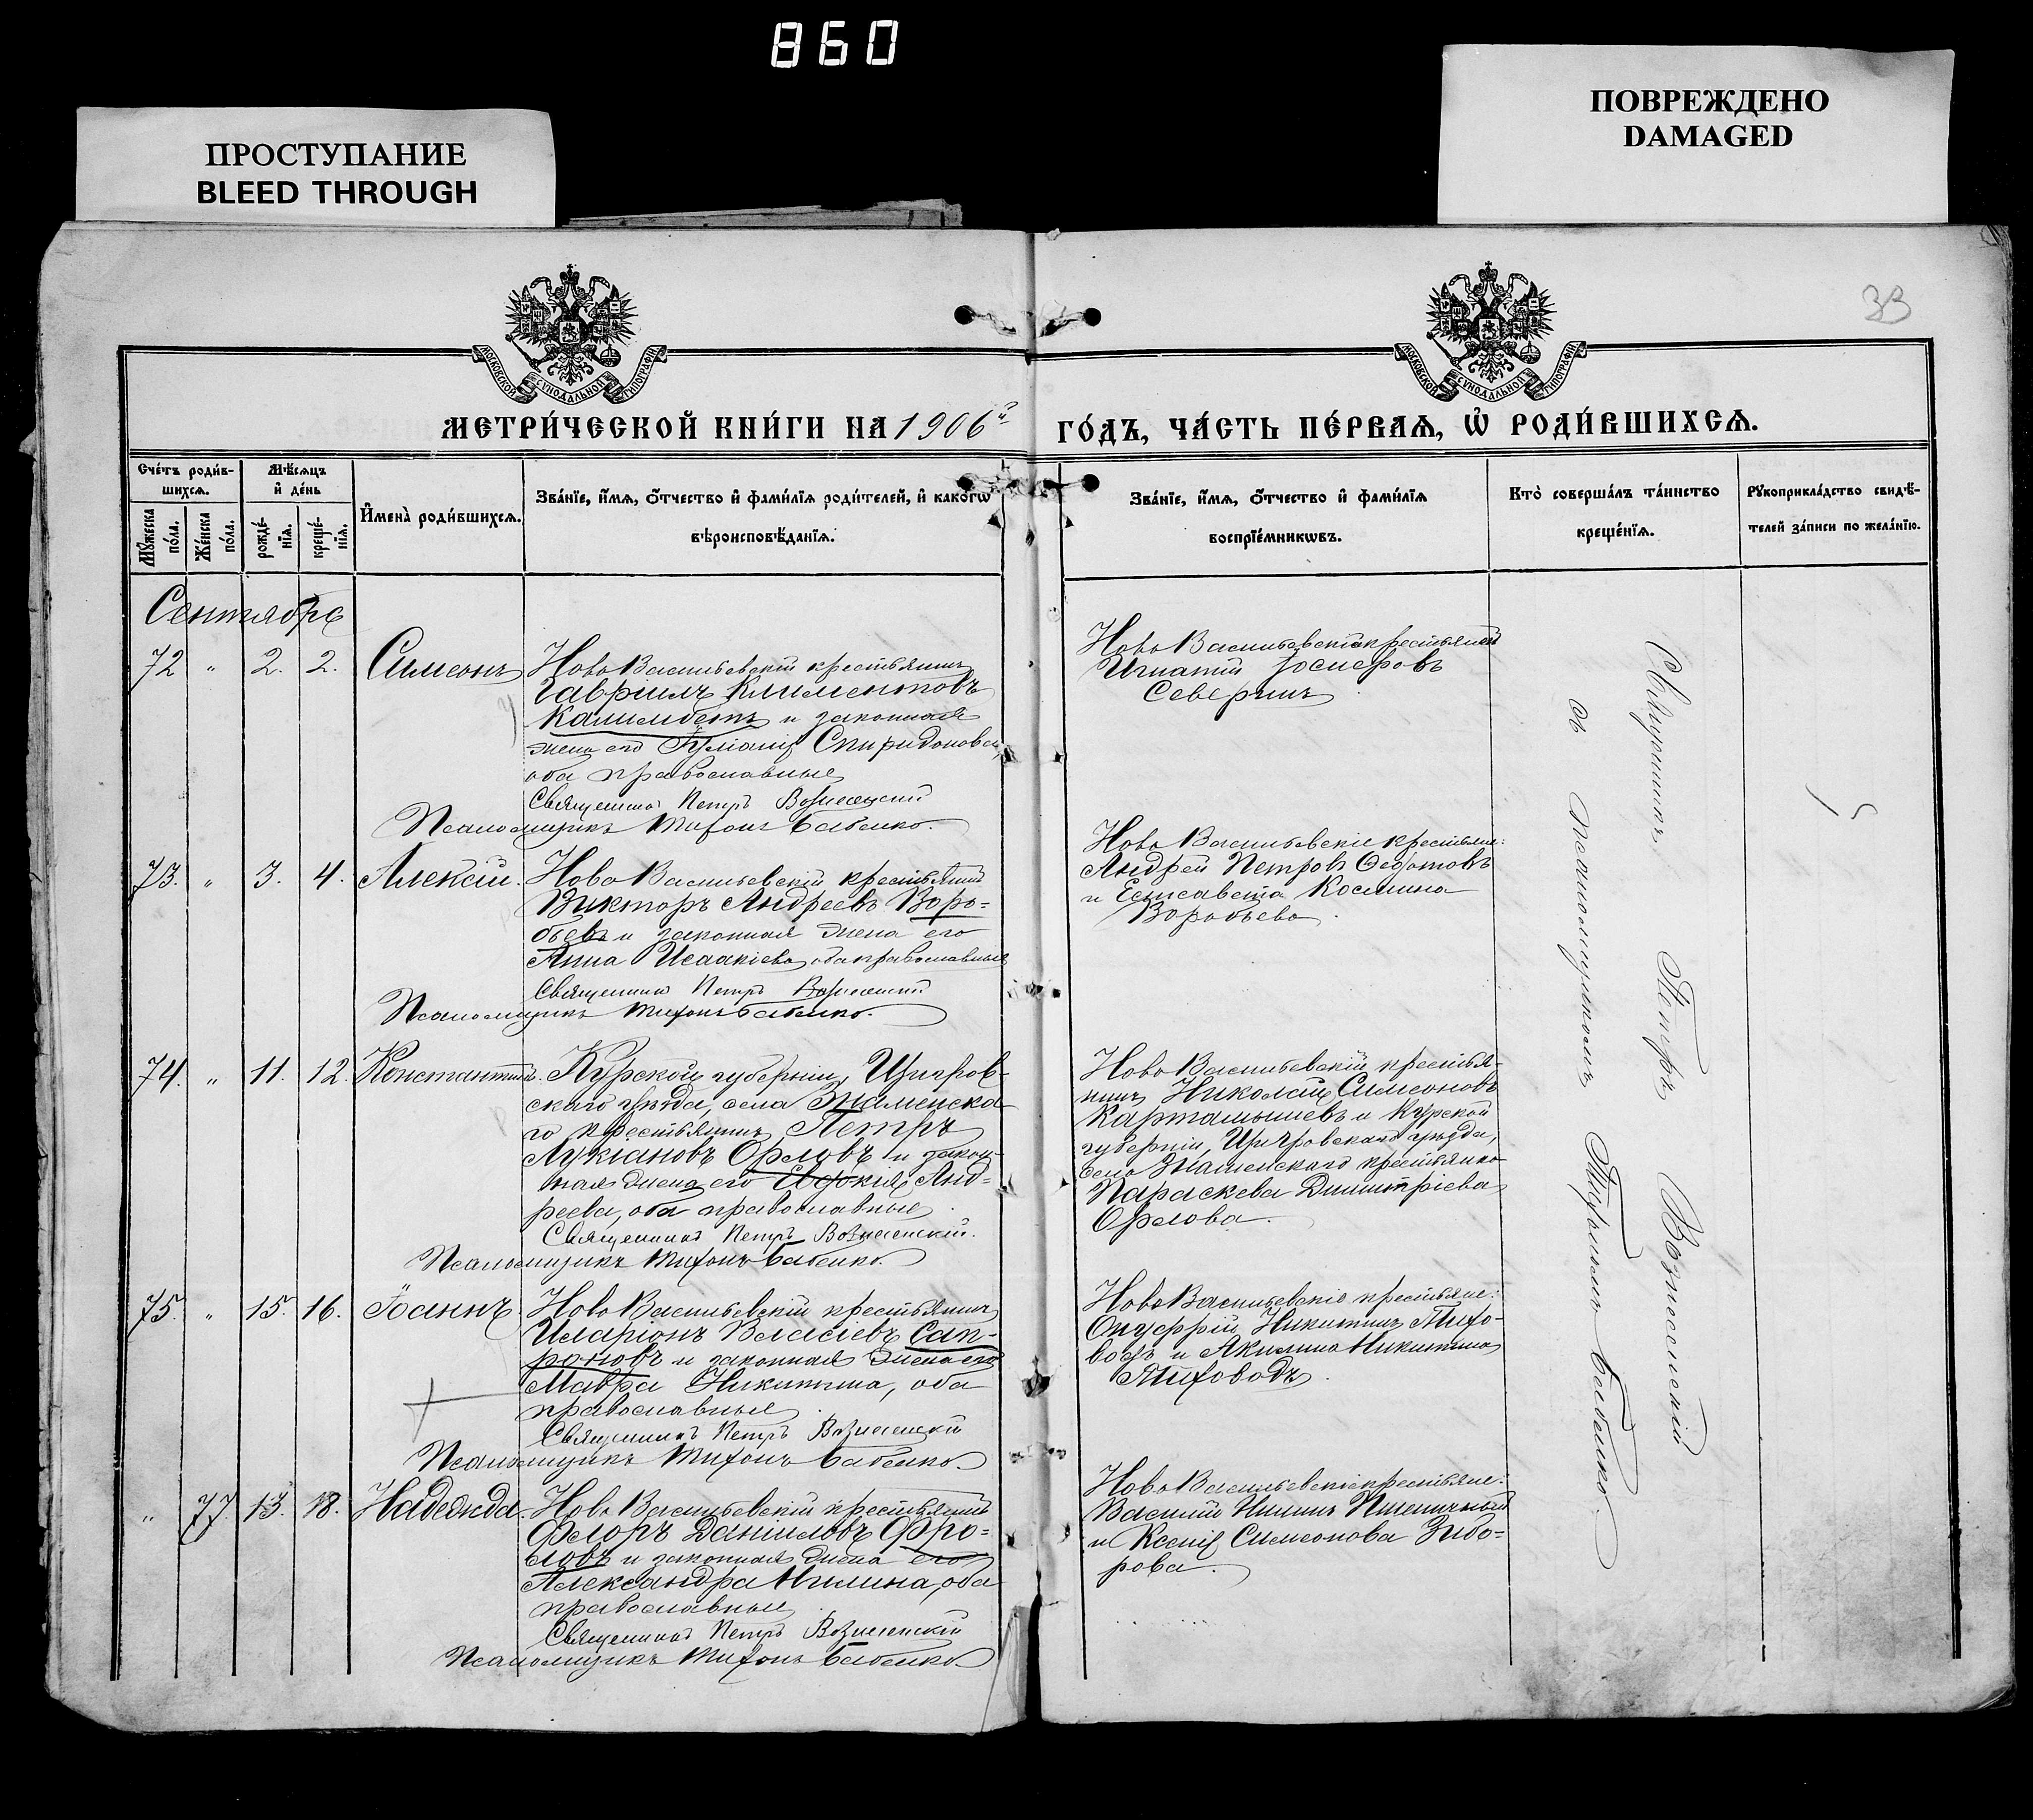 860
ПРОСТУПАНИЕ
BLEED THROUGH
ПОВРЕЖДЕНО
DAMAGED
33
МОСКОВСКОЙ СУНОДАЛЬНОЙ ТИПОГРАФІИ
МОСКОВСКОЙ СУНОДАЛЬНОЙ ТИПОГРАФІИ
МЕТРИ́ЧЕСКОЙ КНИ́ГИ НА 1906й ГО́ДЪ, ЧА́СТЬ ПЕ́РВАѦ, Ѡ҆ РОДИ́ВШИХСѦ.
Сче́тъ роди́в-
шихсѧ.
Мꙋ́жеска по́ла.
Же́нска по́ла.
Мѣ́сѧцъ
и҆ де́нь
рожде́-
нїѧ.
креще́-
нїѧ.
И҆мена̀ роди́вшихсѧ.
Зва́нїе, и҆́мѧ, ѻ҆́тчество и҆ фами́лїѧ роди́телей, и҆ како́гѡ
вѣроисповѣ́данїѧ.
Зва́нїе, и҆́мѧ, ѻ҆́тчество и҆ фами́лїѧ
воспрїе́мникѡвъ.
Кто̀ соверша́лъ та́инство
креще́нїѧ.
Рꙋкоприкла́дство свидѣ́-
телей за́писи по жела́нїю.
Сентябрь
72 " 2. 2. Симеонъ
Ново Васильевскій крестьянинъ
Гавріилъ Климентовъ
Калимбетъ и законная
жена его Іуліанія Спиридонова,
оба православные
Священникъ Петръ Вознесенскій
Псаломщикъ Тихонъ Бабенко.
Ново Васильевскій крестьянинъ
Игнатій Іосифовъ
Северинъ
73. " 3. 4. Алексій.
Ново Васильевскій крестьянинъ
Викторъ Андреевъ Воро=
бьевъ и законная жена его
Анна Исаакіева, оба православные
Священникъ Петръ Вознесенскій
Псаломщикъ Тихонъ Бабенко.
Ново Васильевскіе крестьяне:
Андрей Петровъ Федотовъ
и Елисавета Космина
Воробьева.
74. " 11. 12. Константинъ.
Курской губерніи, Щигров-
скаго уѣзда, села Знаменска-
го крестьянинъ Петръ
Лукіановъ Орловъ и закон-
ная жена его Евдокія Анд=
реева, оба православные.
Священникъ Петръ Вознесенскій.
Псаломщикъ Тихонъ Бабенко.
Ново Васильевскій крестья-
нинъ Николай Симеоновъ
Картамышевъ и Курской
губерніи, Щигровскаго уѣзда,
села Знаменскаго крестьянка
Параскева Димитріева
Орлова.
75. " 15. 16. Іоаннъ.
Ново Васильевскій крестьянинъ
Иларіонъ Власіевъ Сап-
роновъ и законная жена его
Мавра Никитина, оба
православные.
Священникъ Петръ Вознесенскій
Псаломщикъ Тихонъ Бабенко.
Ново Васильевскіе крестьяне:
Онуфрій Никитинъ Тихо-
водъ и Акилина Никитина
Тиховодъ.
" 77. 13. 18. Надежда.
Ново Васильевскій крестьянинъ
Флоръ Даніиловъ Фро=
ловъ и законная жена его
Александра Нилина, оба
православные.
Священникъ Петръ Вознесенскій
Псаломщикъ Тихонъ Бабенко.
Ново Васильевскіе крестьяне:
Василій Нилинъ Пшеничный
и Ксенія Симеонова Зибо=
рова.
Священникъ Петръ Вознесенскій
съ псаломщикомъ Тихономъ Бабенко.